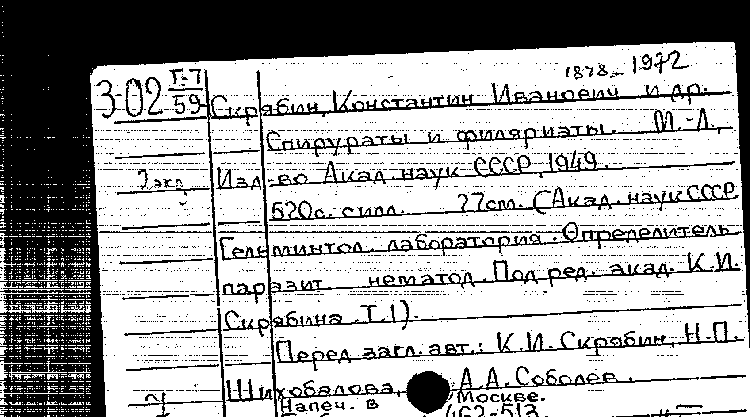 1878-1972
3-02 Г-7
59
Скрябин, Константин Иванович и др.
Спирураты и филяриаты. М.-Л.,
2 экз Изд-во Акад. наук СССР, 1949.
520с. с илл. 27см. (Акад. наук СССР.
Гельминтол. лаборатория. Определитель
паразит. нематод. Под ред. акад. К.И.
Скрябина. Т.1).
Перед загл. авт.: К.И. Скрябин, Н.П.
Шихобалова, А.А. Соболев.
Напеч. в Москве.
462-513.